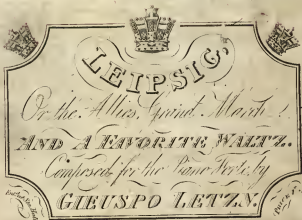 LEIPSIG,
Or the Allies Grand March
AND A FAVORITE WALTZ.
Composed for the Piano Forte, by
GIEUSPO LETZ.N.